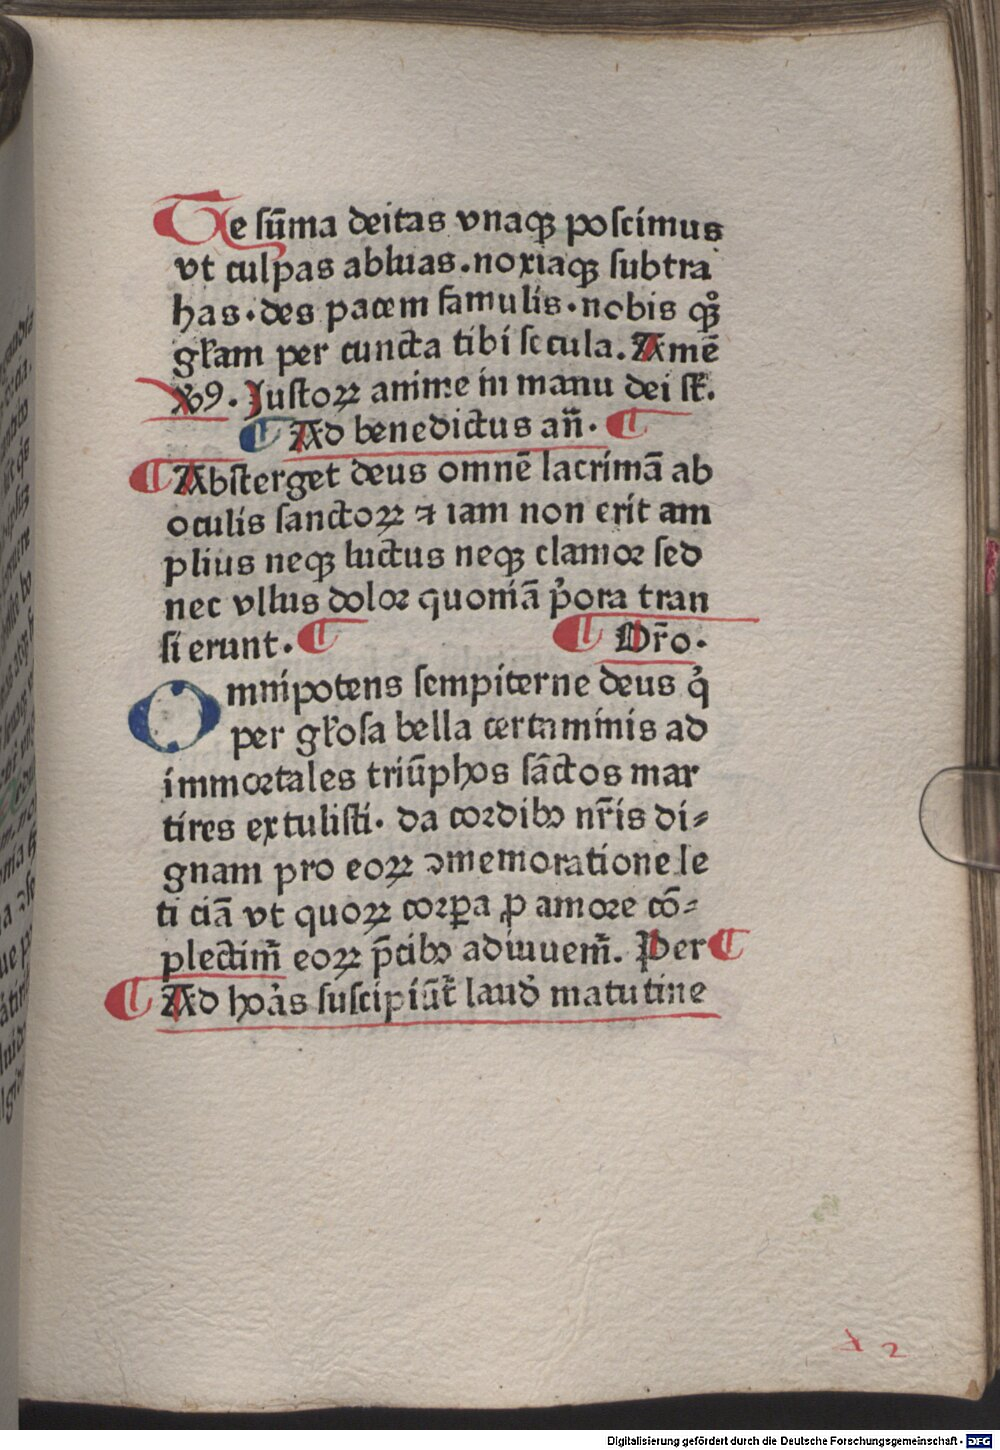 Te sūma deitas vnaqꝫ poscimus
vt culpas abluas. noxiaqꝫ subtra
has. des pacem famulis. nobis qꝫ̊
głam per cuncta tibi secula. Amē
Xꝰ9. Justoꝝ anime in manu dei sł.
¶ Ad benedictus an̄. ¶
¶ Absterget deus omnē lacrimā ab
oculis sanctoꝝ ⁊ iam non erit am
plius neqꝫ luctus neqꝫ clamor sed
nec vllus dolor quoniā p̓ora tran
sierunt. ¶ ¶ Or̄o.
Omnipotens sempiterne deus q̓
per głosa bella certaminis ad
immortales triūphos sāctos mar
tires extulisti. da cordibꝫ nr̄is di⸗
gnam pro eoꝝ ↄmemoratione le
ticiā vt quoꝝ corꝑa ꝓ amore cō⸗
plectim̄ eoꝝ p̄cibꝫ adiuuem̄. Per ¶
¶ Ad hoa̓s suscipiūt̄ laud̓ matutine
2
Digitalisierung gefördert durch die Deutsche Forschungsgemeinschaft - DFG